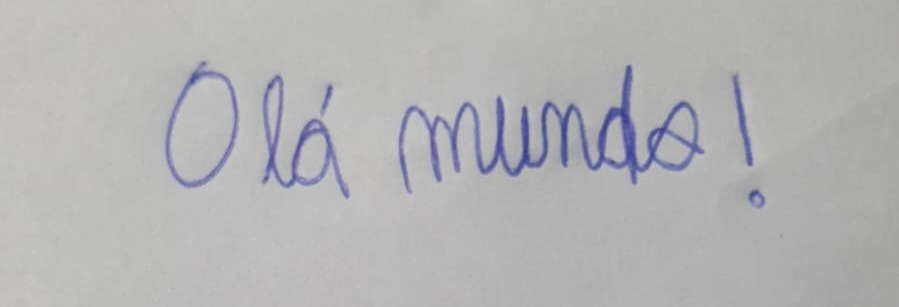 Olá mundo!